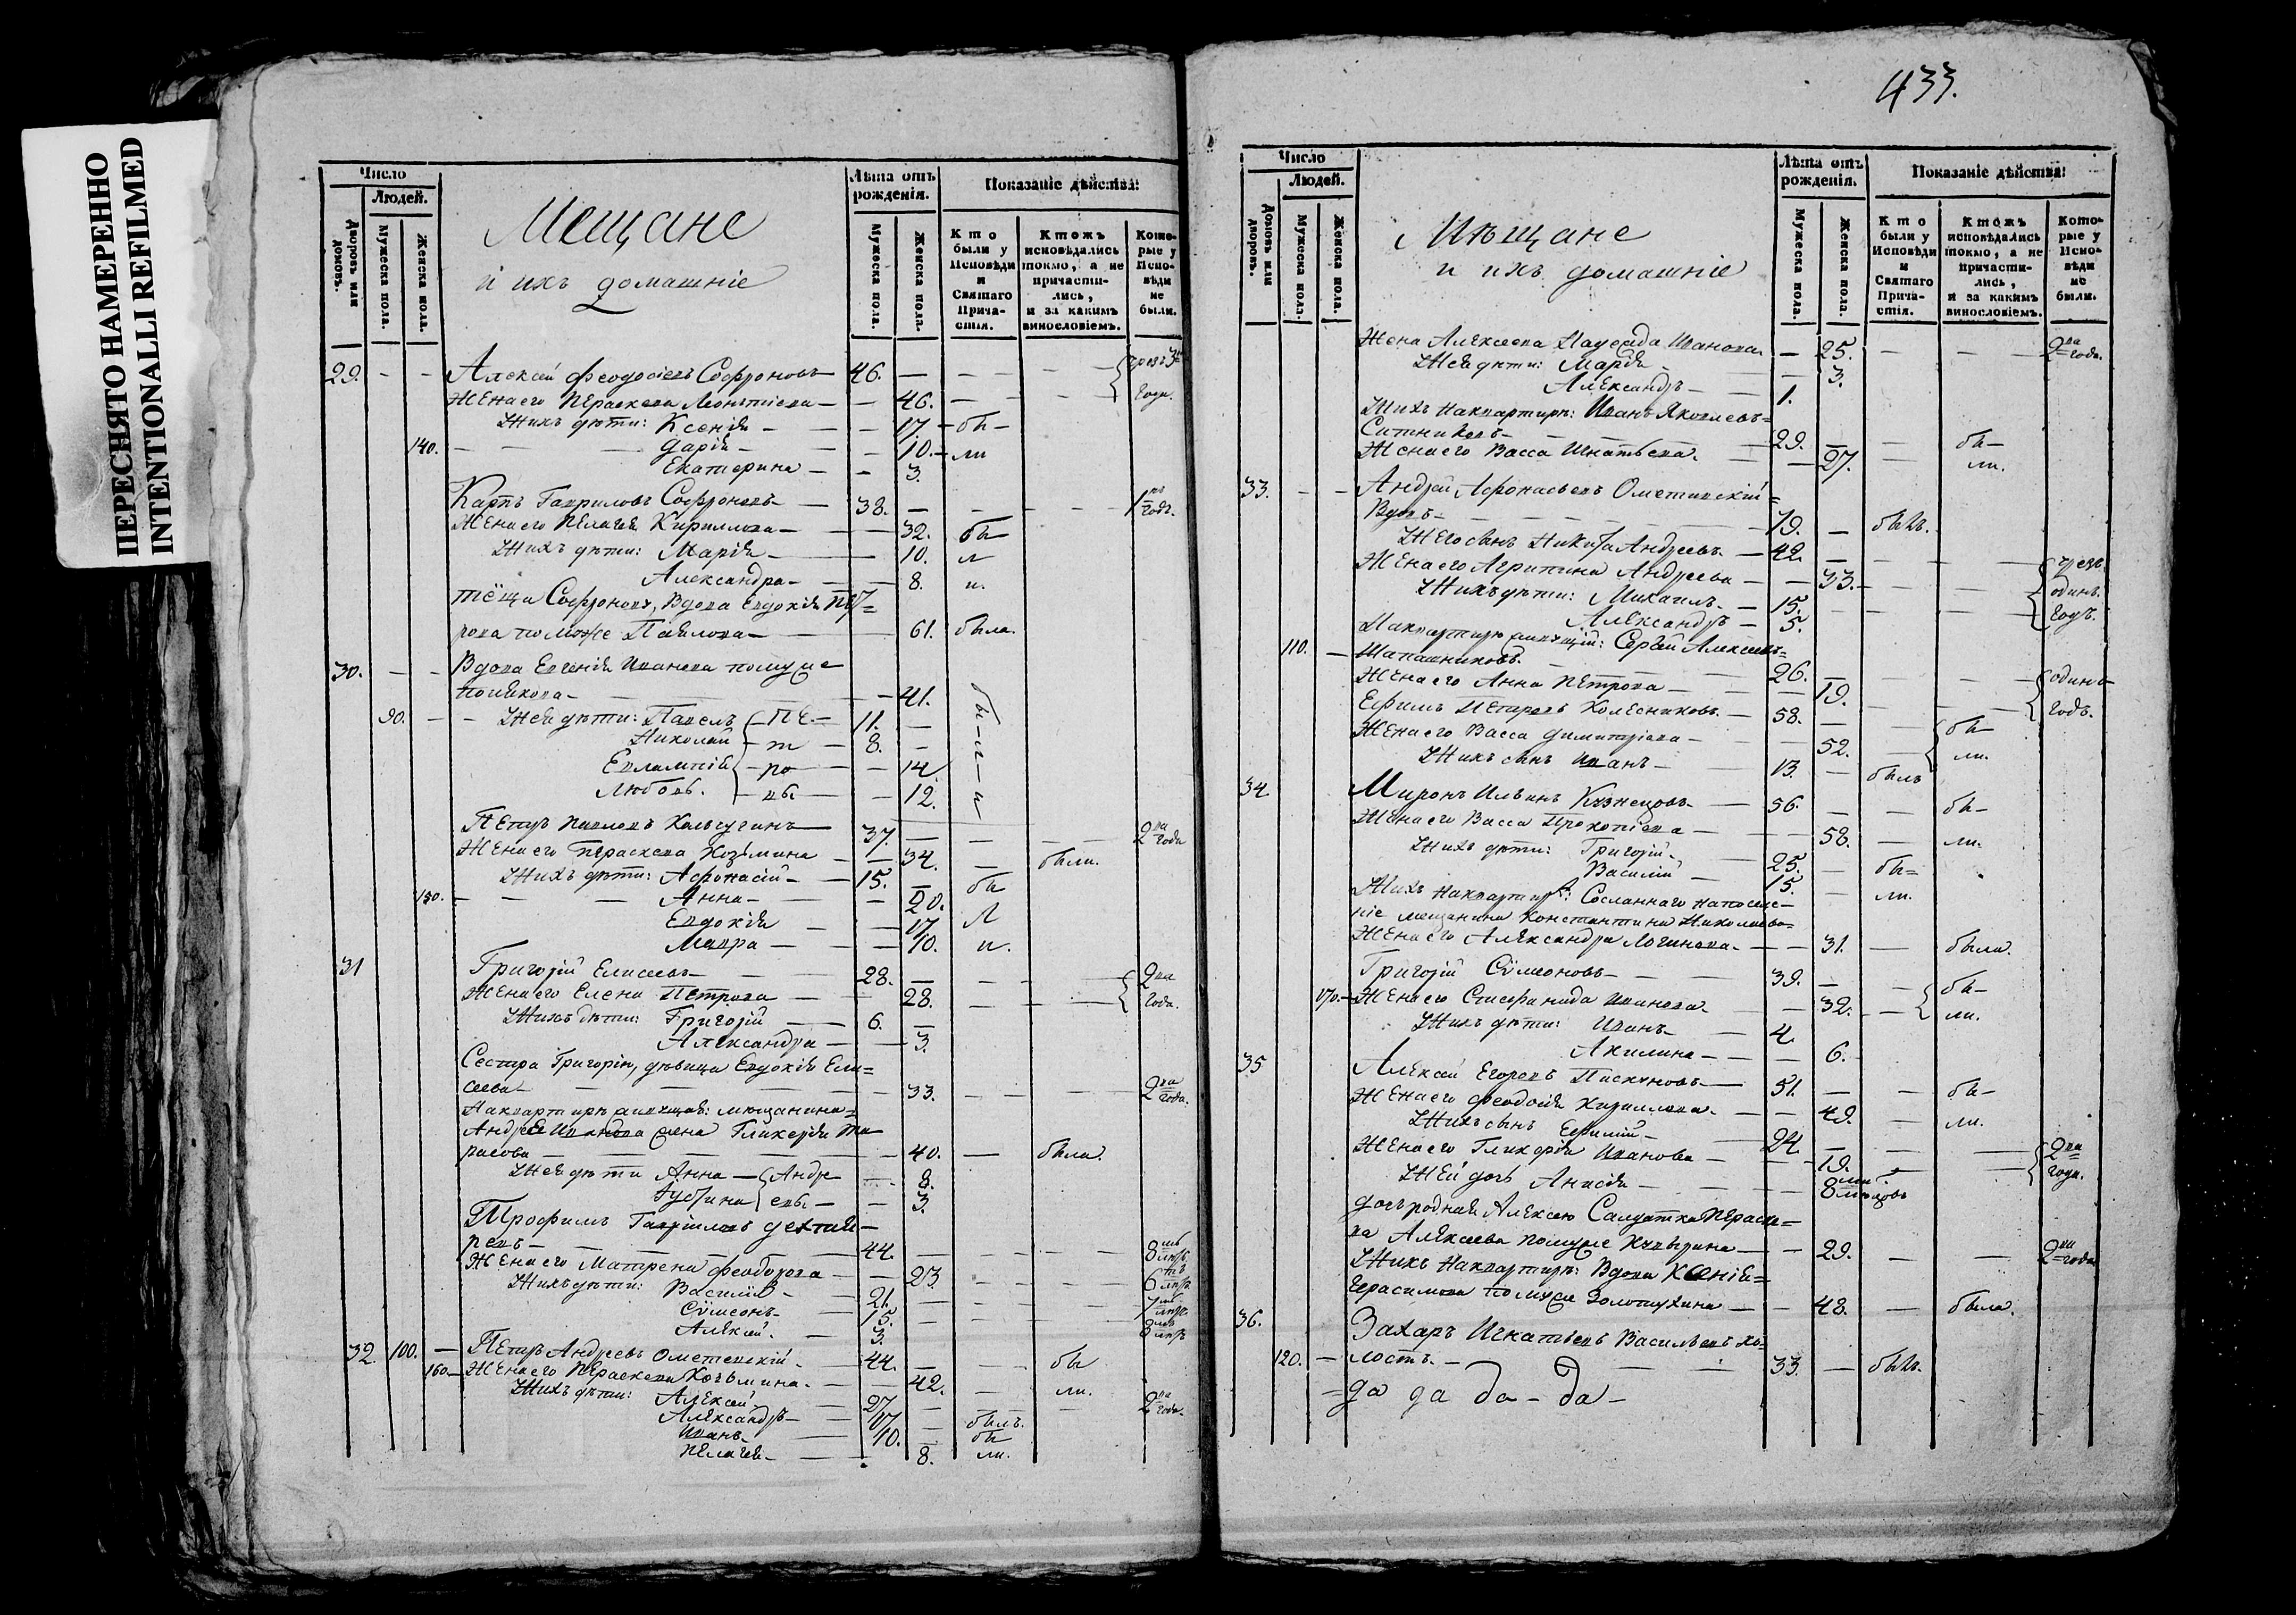 ПЕРЕСНЯТО НАМЕРЕННО
INTENTIONALLI REFILMED
Число
Людей.
Дворовъ или домовъ.
Мужеска пола.
Женска пола.
Мещане
и ихъ домашніе
Лѣта отъ рожденія.
Мужеска пола.
Женска пола.
Показаніе дѣйства:
Кто были у Исповѣди и Святаго Причастія.
Ктожъ исповѣдались токмо, а не причастились, и за какимъ винословіемъ.
Которые у Исповѣди не были.
29. — — Алексей Феодосіевъ Софроновъ — 46. — — —
Жена его Параскева Леонтіева — — 46. — — года.
У нихъ дѣти: Ксенія — — 17. — бы —
140. — — Дарія — — 10. — ли
Екатерина — — 3.
Карпъ Гавриловъ Софроновъ — 38. — — — 1 годъ.
Жена его Пелагея Кириллова — — 32. бы
У нихъ дѣти: Марія — — 10. л
Александра — — 8. и.
тёща Софронову, Вдова Евдокія Пет=
рова по мужѣ Павлова — — 61. была.
30. — — Вдова Евгенія Иванова по мужѣ
Полякова — — 41.
90. — — У нея дѣти: Павелъ — Пе — 11. — бы
Николай — т — 8. —
Евлампія — ро — — 14. л
Любовь. — вы. — — 12. и
Петръ Павловъ Кольчугинъ — 37. — — — 2 года
Жена его Параскева Козьмина — — 34. — были.
У нихъ дѣти: Афонасій — 15. — бы
150. — — — Анна — — 20.
Евдокія — — 17. л
Мавра — — 10. и.
31 Григорій Елисеевъ — 28. — — — 2 года.
Жена его Елена Петрова — — 28. — —
У нихъ дѣти: Григорій — 6. —
Александра — — 3.
Сестра Григорія, дѣвица Евдокія Ели=
сеева — — — 33. — — 2 года.
На квартирѣ живущая: мещанина
Андрея Иванова жена Гликерія Та
расова — — — 40. — была.
У нея дѣти Анна — Андре — 8.
Іустина — евы — — 3.
Трофимъ Гавриловъ Дехтя=
ревъ — — — 44. — — — 8 лѣтъ
Жена его Матрена Феодорова — — 23. — — 6 лѣтъ
У нихъ дѣти: Василій — 21. — — — 7 лѣтъ
Сѵмеонъ — 15. — — — 8 лѣтъ
Алексей. — 3.
32 100. — Петръ Андреевъ Ометевскій. — 44. — — бы
160. — Жена его Параскева Козьмина. — — 42. — ли.
У нихъ дѣти: Алексей — 27 — — — 2 года.
Александръ — 17. — былъ.
Иванъ — 10. бы
Пелагея — — 8. ли.
433.
Число
Людей.
Домовъ или дворовъ.
Мужеска пола.
Женска пола.
Мѣщане
и ихъ домашніе
Лѣта отъ рожденія.
Мужеска пола.
Женска пола.
Показаніе дѣйства:
Кто были у Исповѣди и Святаго Причастія.
Ктожъ исповѣдались токмо, а не причастились, и за какимъ винословіемъ.
Которые у Исповѣди не были.
Жена Алексеева Надежда Иванова — — 25. — — 2 года.
У нея дѣти: Марія — — 3.
Александръ — 1.
У нихъ на квартирѣ: Иванъ Яковлевъ=
Ситниковъ — — 29. — — бы —
Жена его Васса Игнатьева. — — 27. — ли.
33. — — Андрей Афонасьевъ Ометевскій=
Вдовъ — — 79. — былъ.
У Него сынъ Никита Андреевъ — 42. — — —
Жена его Агрипина Андреева — — 33. — — одинъ.
У нихъ дѣти: Михаилъ — 15. — — — годъ.
Александръ — 5.
На квартирѣ живущій: Сергей Алексеевъ=
110. — Шапошниковъ. — 26. — — — одинъ
Жена его Анна Петрова — — 19. — — годъ.
Ефимъ Петровъ Колесниковъ — 58. — — бы
Жена его Васса Димитріева — — 52. — ли.
У нихъ сынъ Иванъ — 13. — былъ
34. Миронъ Ильинъ Кузнецовъ — 56. — — бы —
Жена его Васса Прокопіева — — 58. — ли.
У нихъ дѣти: Григорій. — 25. — бы =
Василій — 15. — ли.
У нихъ на квартирѣ: Сосланнаго на поселе=
ніе мещанина Константина Николаева=
Жена его Александра Логинова — — 31. — была.
Григорій Сѵмеоновъ — 39. — — бы —
170. — Жена его Стефанида Иванова — — 32. — ли.
У нихъ дѣти: Иванъ — 4.
Акилина — — 6.
35 Алексей Егоровъ Пискуновъ — 51. — — бы —
Жена его Феодосія Кириллова. — — 49. — ли.
У нихъ сынъ Ефимій — 24. — — — 2 года.
Жена его Гликерія Иванова — — 19. — —
У Ней дочь Анисія — — 8 мѣсяцовъ
Дочь родная Алексею Салдатка Параске=
ва Алексеева по мужѣ — — 29. — — 2 года
У нихъ на квартирѣ: Вдова Ксенія=
Герасимова по мужѣ Золотухина — — 48. — была.
36. Захаръ Игнатьевъ Васильевъ хо=
120. — лостъ. — — 33. — былъ.
= да да да — да —